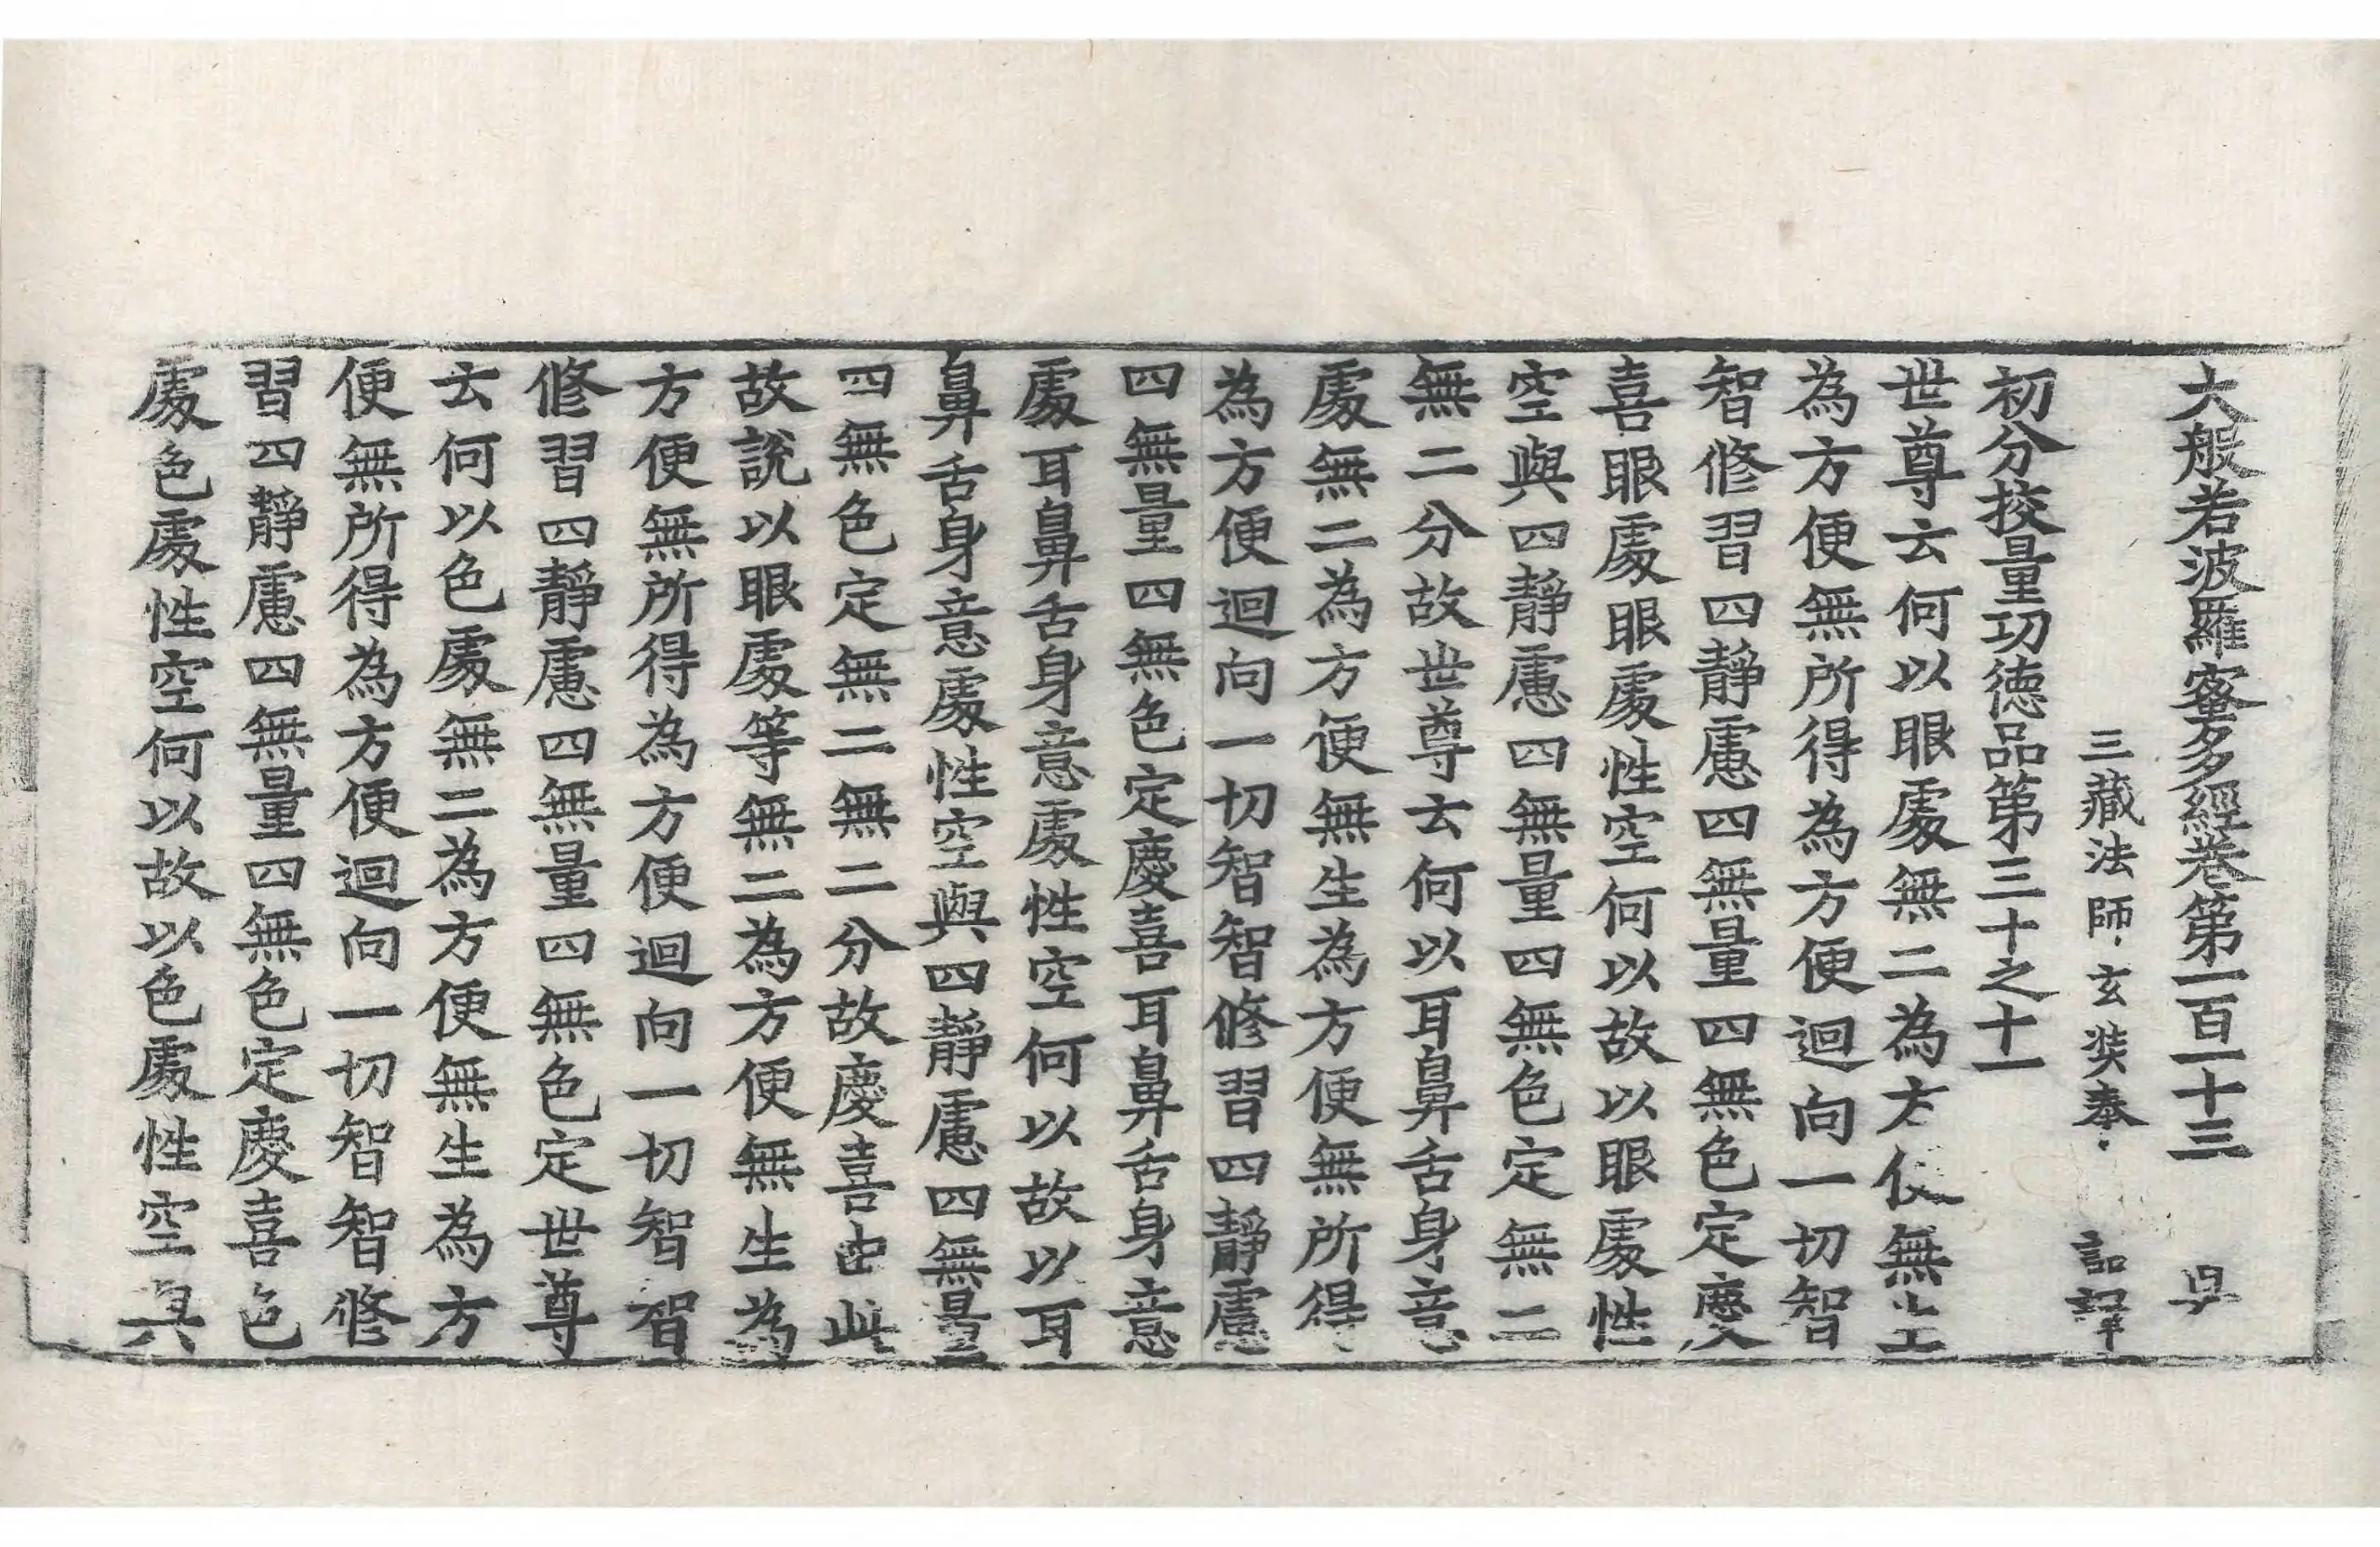 大般若波羅蜜多經卷第一百一十三
三藏法師玄奘奉 詔譯
初分挍量功德品第三十之十一
世尊云何以眼處無二為方便無生
為方便無所得為方便迴向一切智
智修習四靜慮四無量四無色定慶
喜眼處眼處性空何以故以眼處性
空與四靜慮四無量四無色定無二
無二分故世尊云何以耳鼻舌身意
處無二為方便無生為方便無所得
為方便迴向一切智智修習四靜慮
四無量四無色定慶喜耳鼻舌身意
處耳鼻舌身意處性空何以故以耳
鼻舌身意處性空與四靜慮四無量
四無色定無二無二分故慶喜由此
故說以眼處等無二為方便無生為
方便無所得為方便迴向一切智智
修習四靜慮四無量四無色定世尊
云何以色處無二為方便無生為方
便無所得為方便迴向一切智智修
習四靜慮四無量四無色定慶喜色
處色處性空何以故以色處性空與